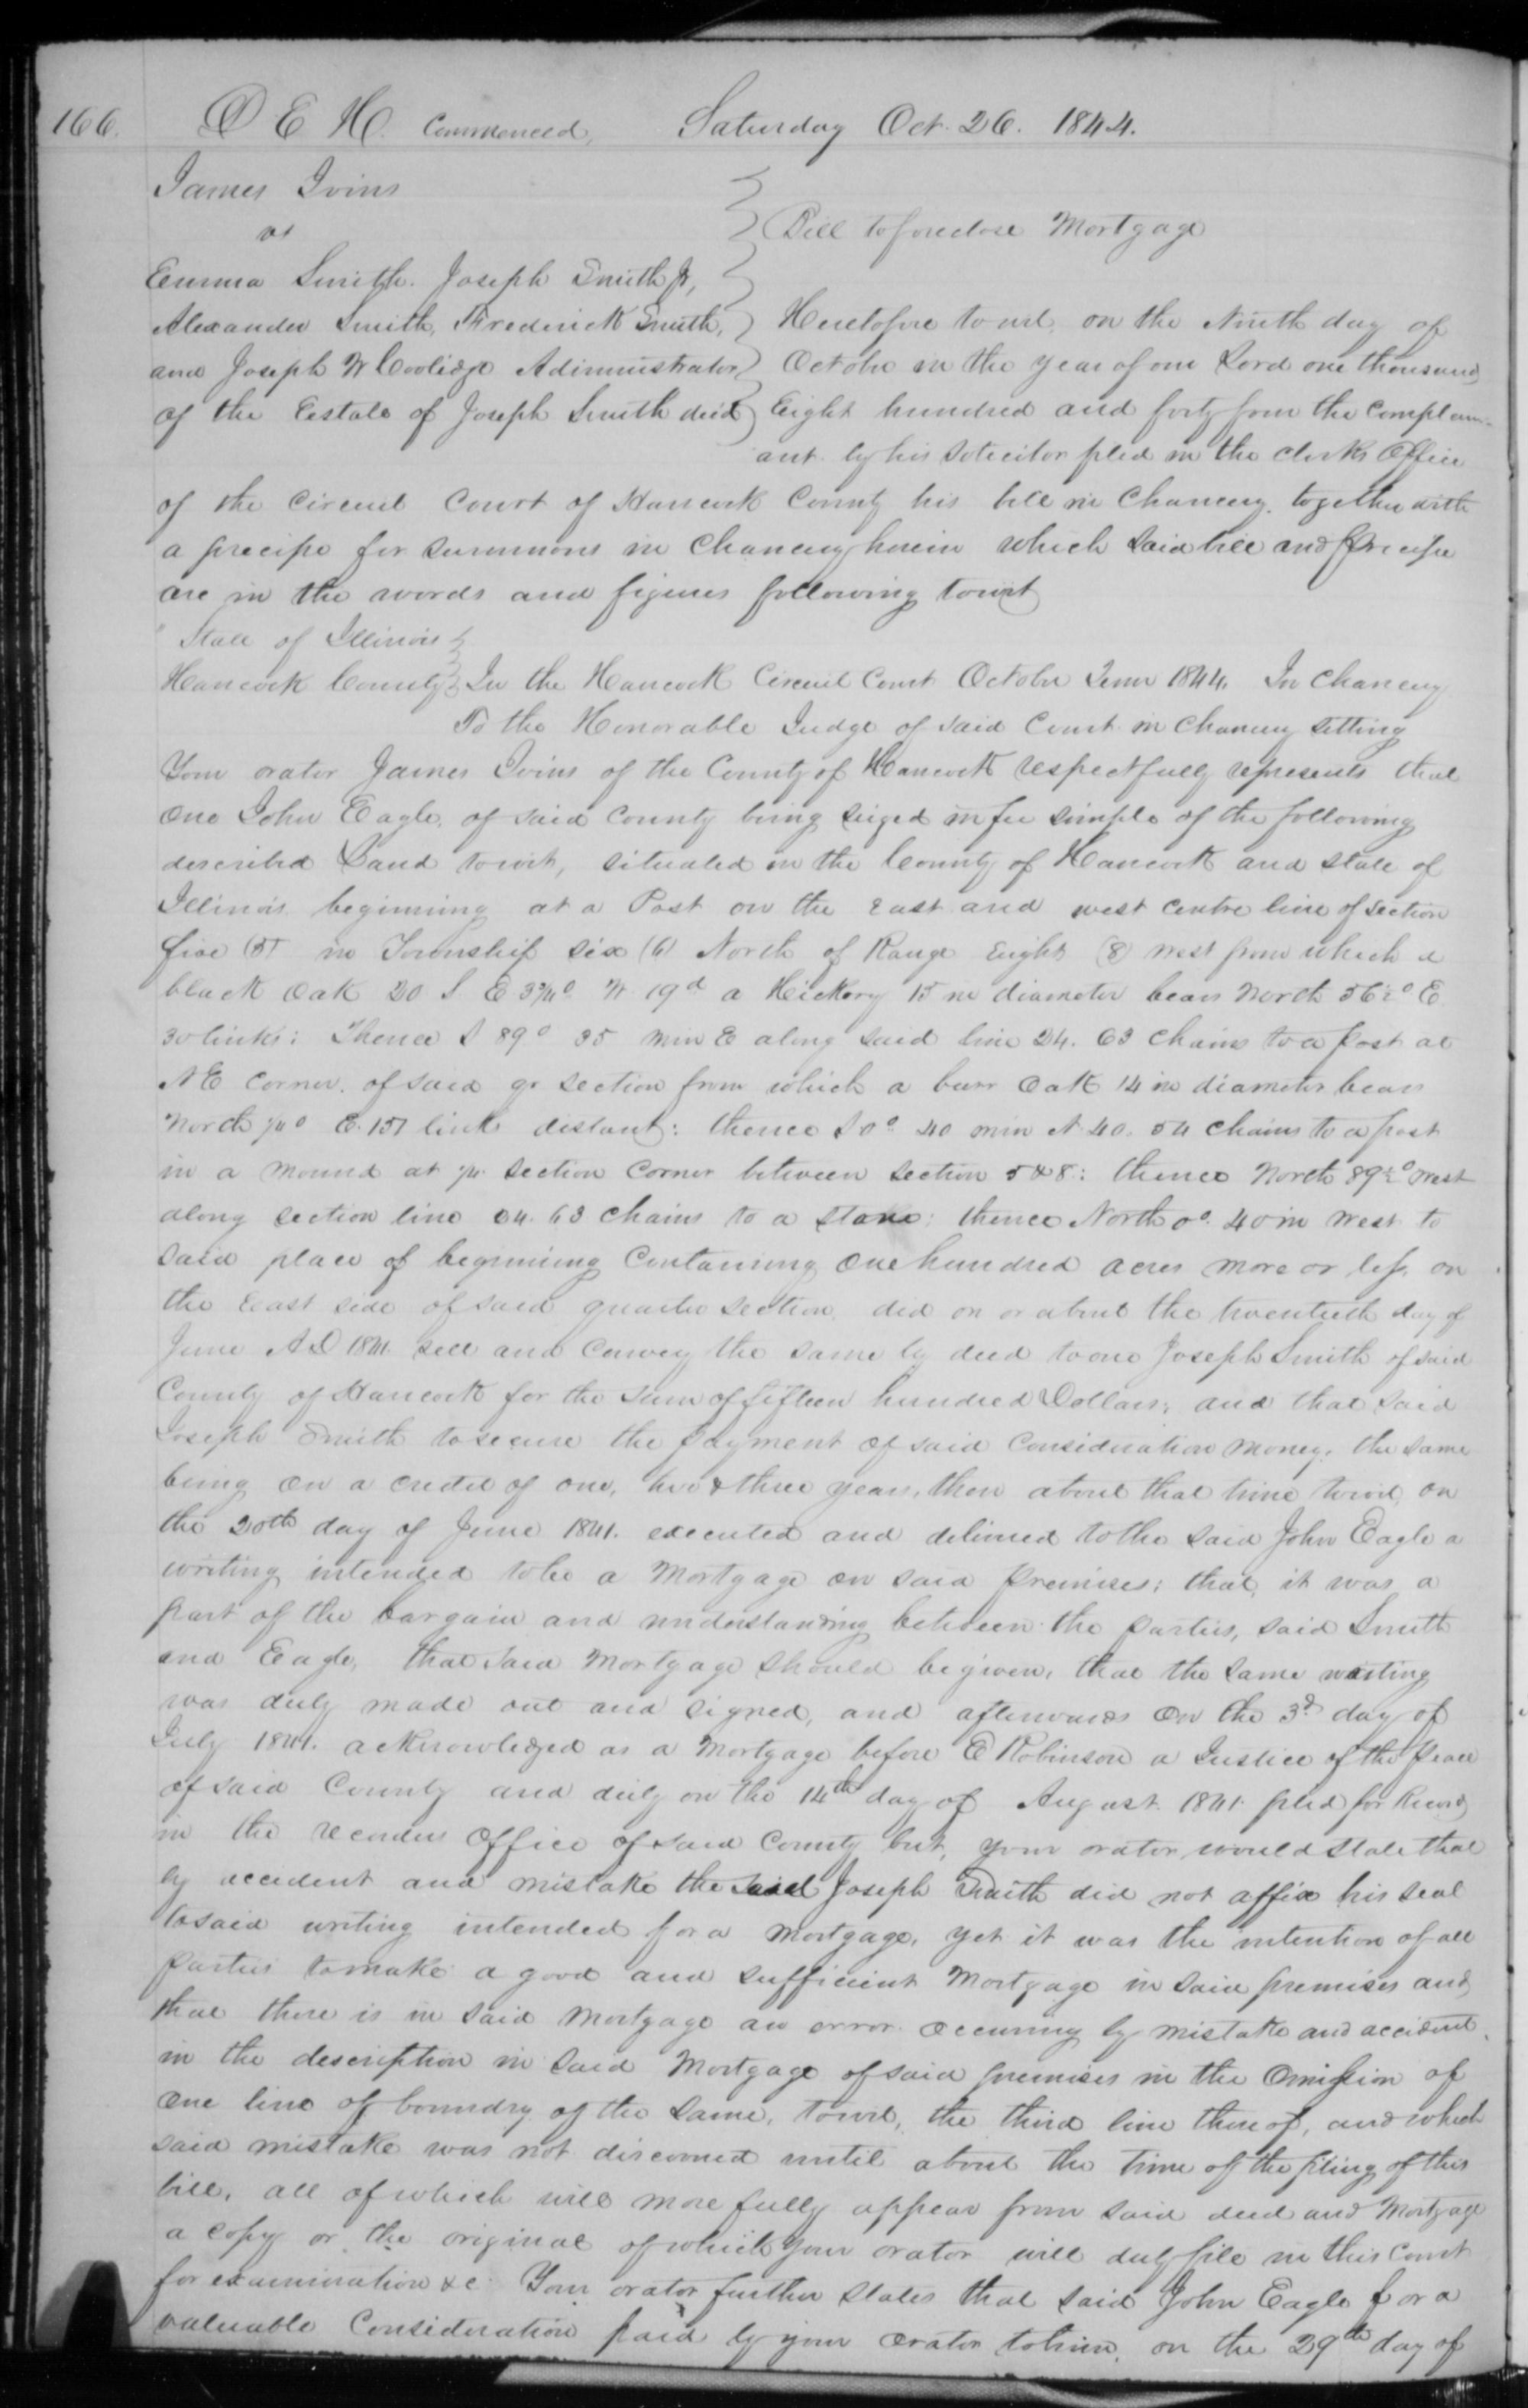 166. D E H. Commenced, Saturday Oct. 26. 1844.
James Ivins
vs
Bill to foreclose Mortgage
Emma Smith. Joseph Smith Jr,
Alexander Smith, Frederick Smith, Heretofore towit, on the Ninth day of
and Joseph W Coolidge Administrator October in the year of our Lord one thousand
of the Eestate of Joseph Smith dec'd Eight hundred and forty four the Complain-
ant by his Solicitor filed in the clerks Office
of the Circuit Court of Hancock County his bill in Chancery. together with
a precipe for summons in Chancery herein which Said bill and precipe
are in the words and figures following towit
" State of Illinois
Hancock County In the Hancock Circuit Court October Term 1844. In Chancery
To the Honorable Judge of said Court in Chancery sitting
Your orator James Ivins of the County of Hancock respectfully represents that
one John Eagle, of said County being seized in fee simple of the following
described Land towit, situated in the County of Hancock and state of
Illinois beginning at a Post on the east and west centre line of section
five (5) in Township six (6) North of Range Eight (8) west from which a
black Oak 20 S E 3 3/4° W 19d a Hickory 15 in diameter bears North 56 1/2° E.
30 links: Thence S 89° 35 min E along said line 24. 63 Chains to a post at
N E corner. of said qr section from which a burr Oak 14 in diameter bears
North 1/4° E. 157 links distant: thence S 0° 40 min 40. 54 Chains to a post
in a mound at 1/4 section Corner between section 5 & 8: thence North 89 1/2° West
along section line 24. 63 chains to a stake: thence North 0°. 40 m West to
said place of beginning Containing One hundred acres more or less, on
the East side of said quarter section. did on or about the twentieth day of
June A.D 1841. sell and Convey the same by deed to one Joseph Smith of said
County of Hancock for the Sum of fifteen hundred Dollars; and that said
Joseph Smith to secure the payment of said Consideration money. the same
being on a credit of one, two & three years, then about that time towit, on
the 20th day of June 1841. executed and delivered to the said John Eagle a
writing intended to be a Mortgage on said premises; that, it was a
part of the bargain and understanding between the parties, said Smith
and Eagle, that said Mortgage should be given, that the same writing
was duly made out and signed, and afterwards On the 3d day of
July 1841. acknowledged as a Mortgage before E Robinson a Justice of the peace
of said County and duly on the 14th day of August 1841. filed for Record
in the recorders Office of said County but, your orator would State that
by accident and mistake the Said Joseph Smith did not affix his seal
to said writing intended for a Mortgage, yet it was the intention of all
parties to make a good and sufficient Mortgage in said premises and
that there is in said Mortgage an error occurring by mistake and accident.
in the description in said Mortgage of said premises in the Omission of
One line of boundry of the same, towit, the third line there of, and which
said mistake was not discovered until about the time of the filing of this
bill, all of which will more fully appear from said deed and Mortgage
a copy or the original of which your orator will duly file in this Court
for examination &c. Your orator further states that said John Eagle for a
valuable Consideration paid by your Orator to him, on the 29th day of